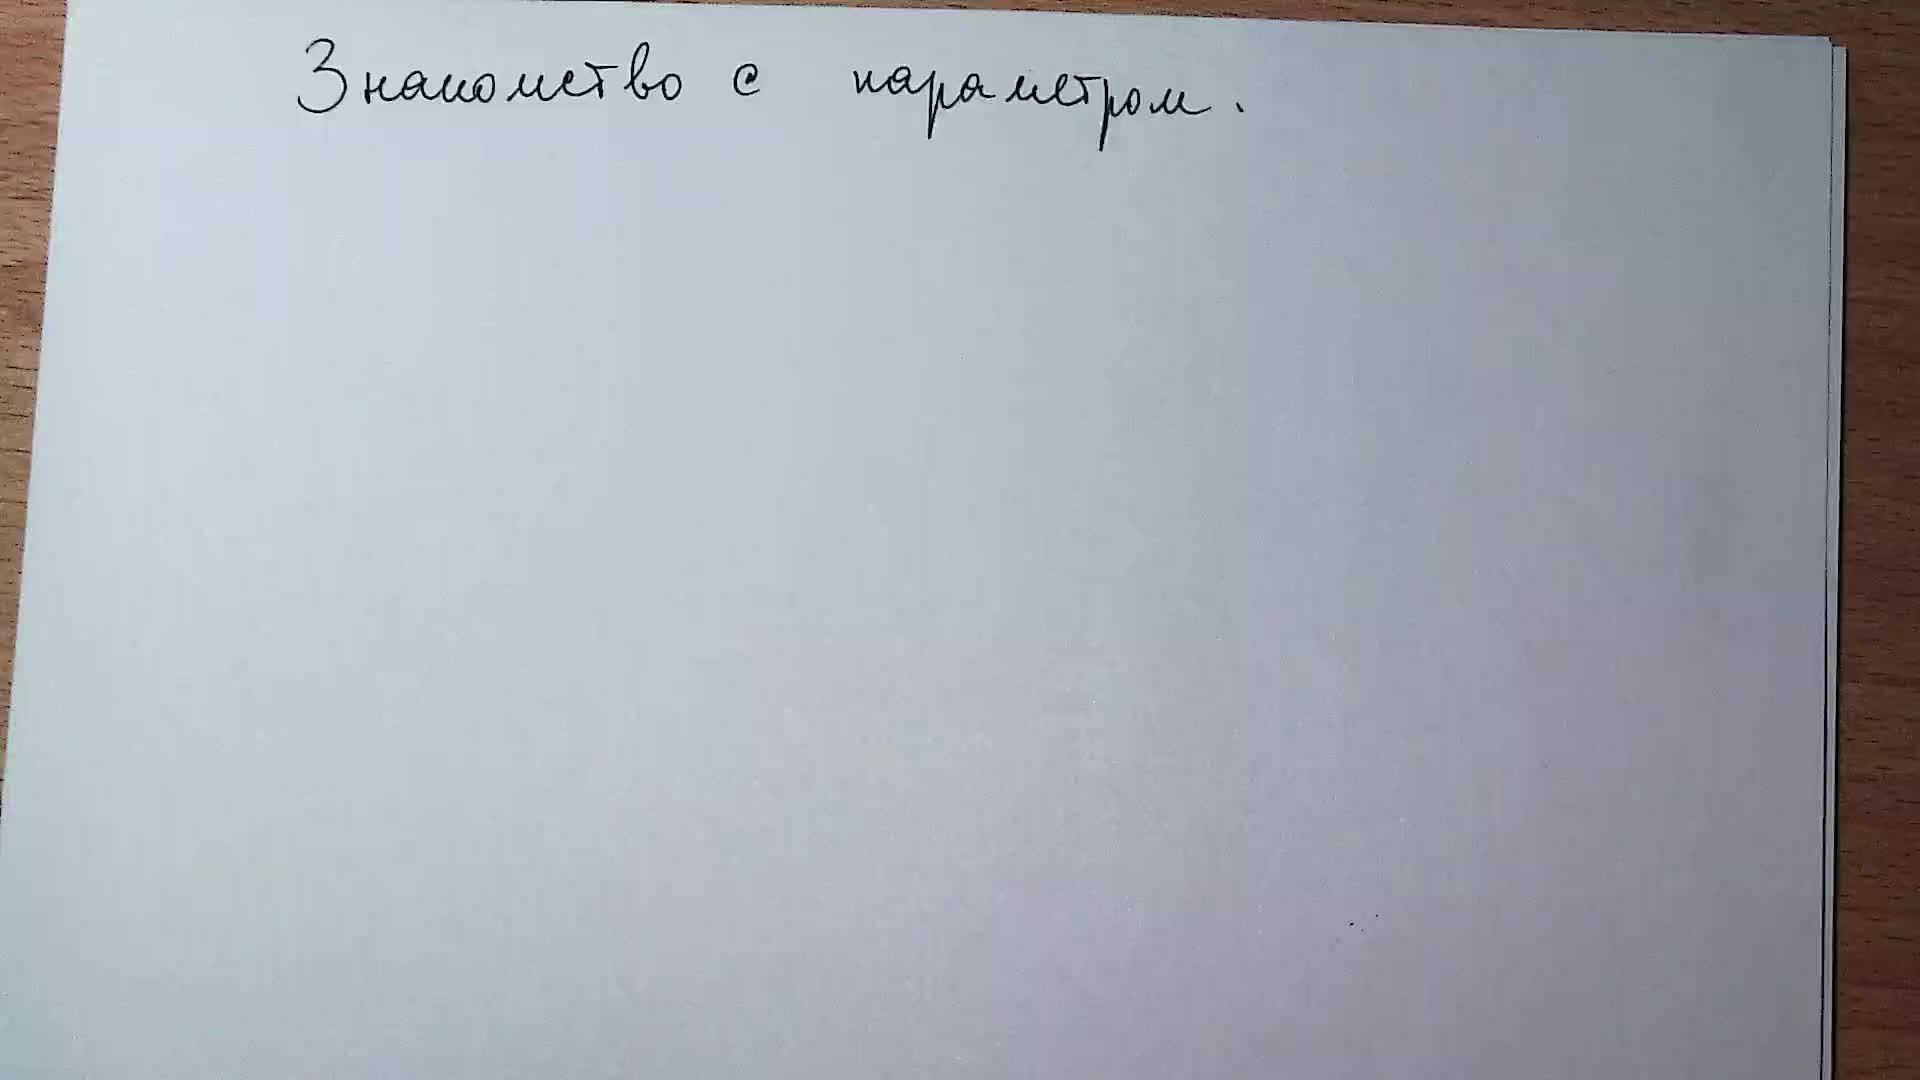 Знакомство с параметром.